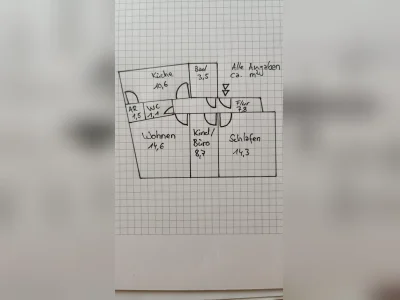 Küche
10,6
Bad
3,5
Alle Angaben
ca. m²
AR
1,5
WC
1,1
Flur
7,8
Wohnen
14,6
Kind/
Büro
8,7
Schlafen
14,3